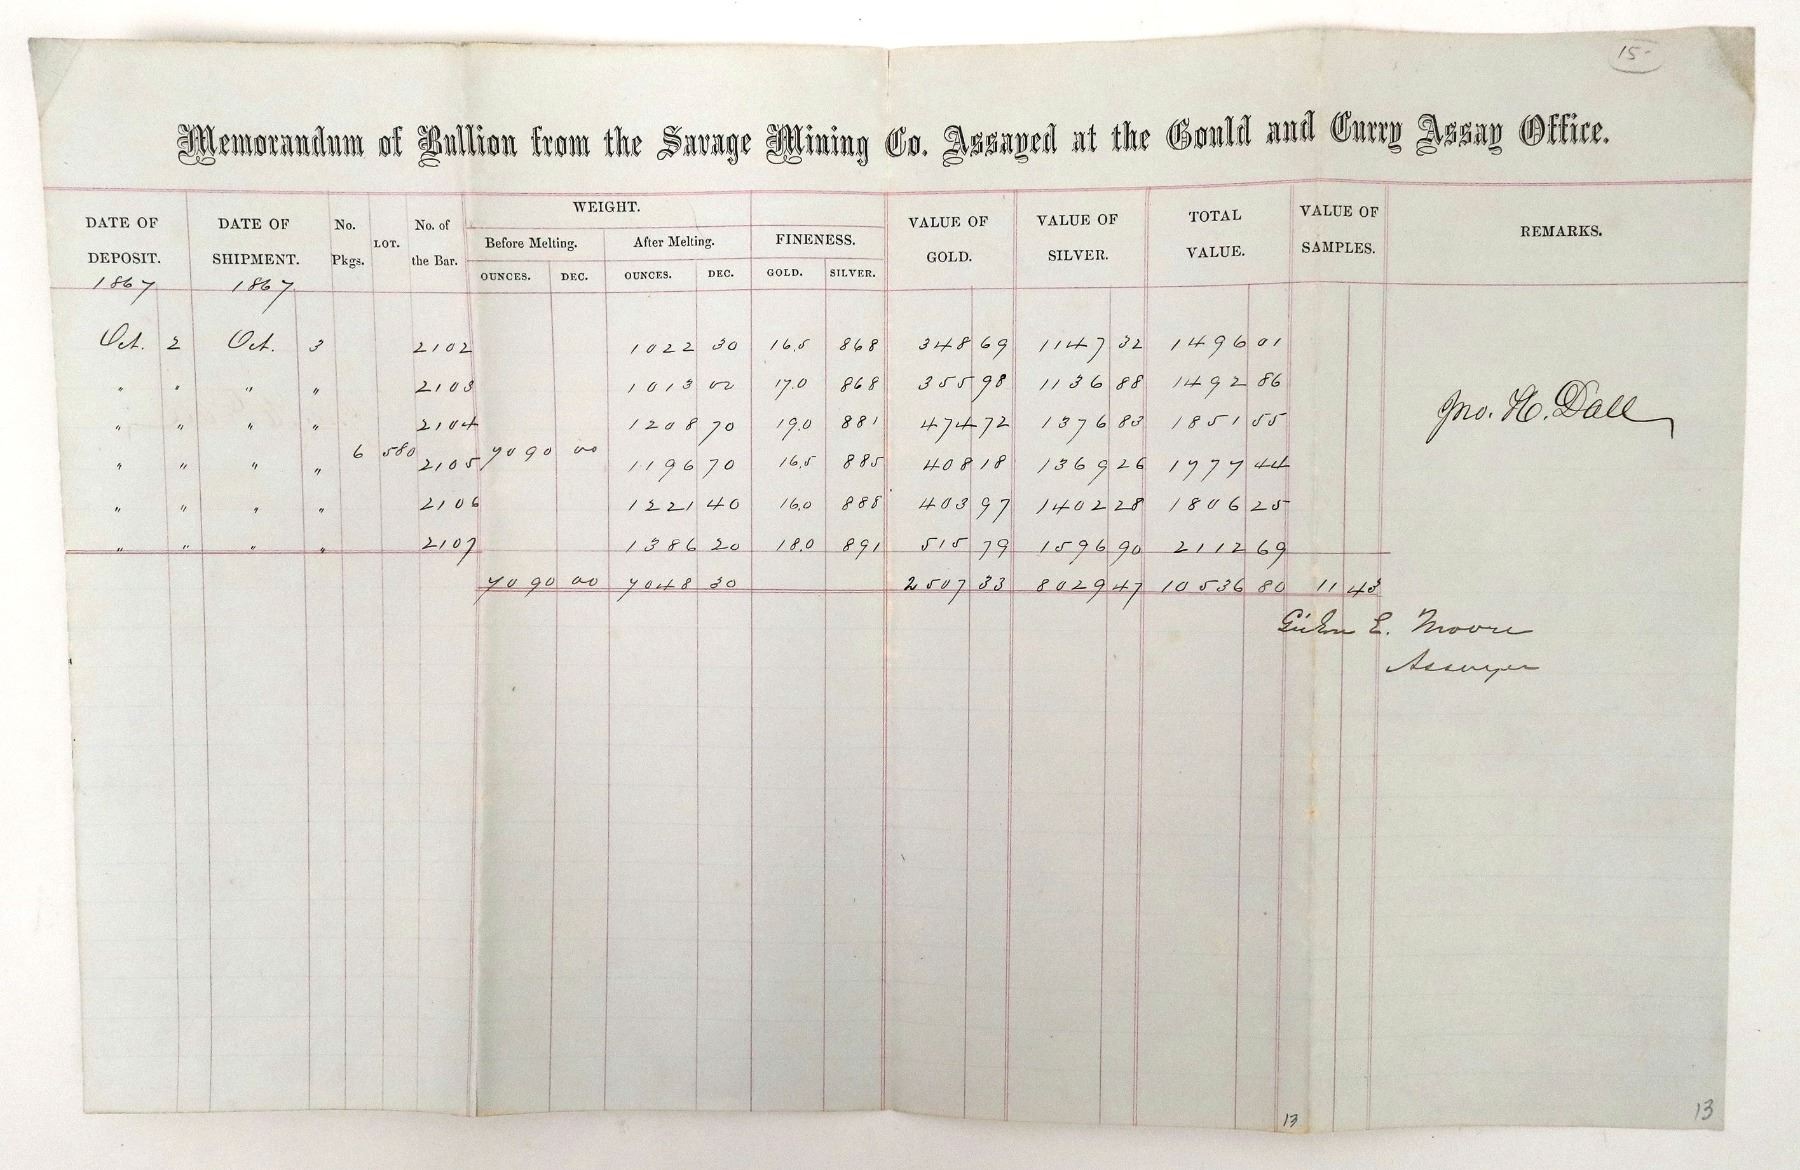 15-
Memorandum of Bullion from the Savage Mining Co. Assayed at the Gould and Curry Assay Office.
DATE OF DEPOSIT. DATE OF SHIPMENT. No. Pkgs. LOT. No. of the Bar. WEIGHT. FINENESS. VALUE OF GOLD. VALUE OF SILVER. TOTAL VALUE. VALUE OF SAMPLES. REMARKS.
Before Melting. After Melting.
OUNCES. DEC. OUNCES. DEC. GOLD. SILVER.
1867 1867
Oct. 2 Oct. 3 2102 1022 30 16.5 868 348 69 1147 32 1496 01
" " " " 2103 1013 00 17.0 868 355 98 1136 88 1492 86
Jno. H. Dall
" " " " 2104 1208 70 19.0 881 474 72 1376 83 1851 55
" " " " 6 580 2105 7090 00 1196 70 16.5 885 408 18 1369 26 1777 44
" " " " 2106 1221 40 16.0 888 403 97 1402 28 1806 25
" " " " 2107 1386 20 18.0 891 515 79 1596 90 2112 69
7090 00 7048 30 2507 33 8029 47 10536 80 11 43
E. Moore
Assayer
13
13